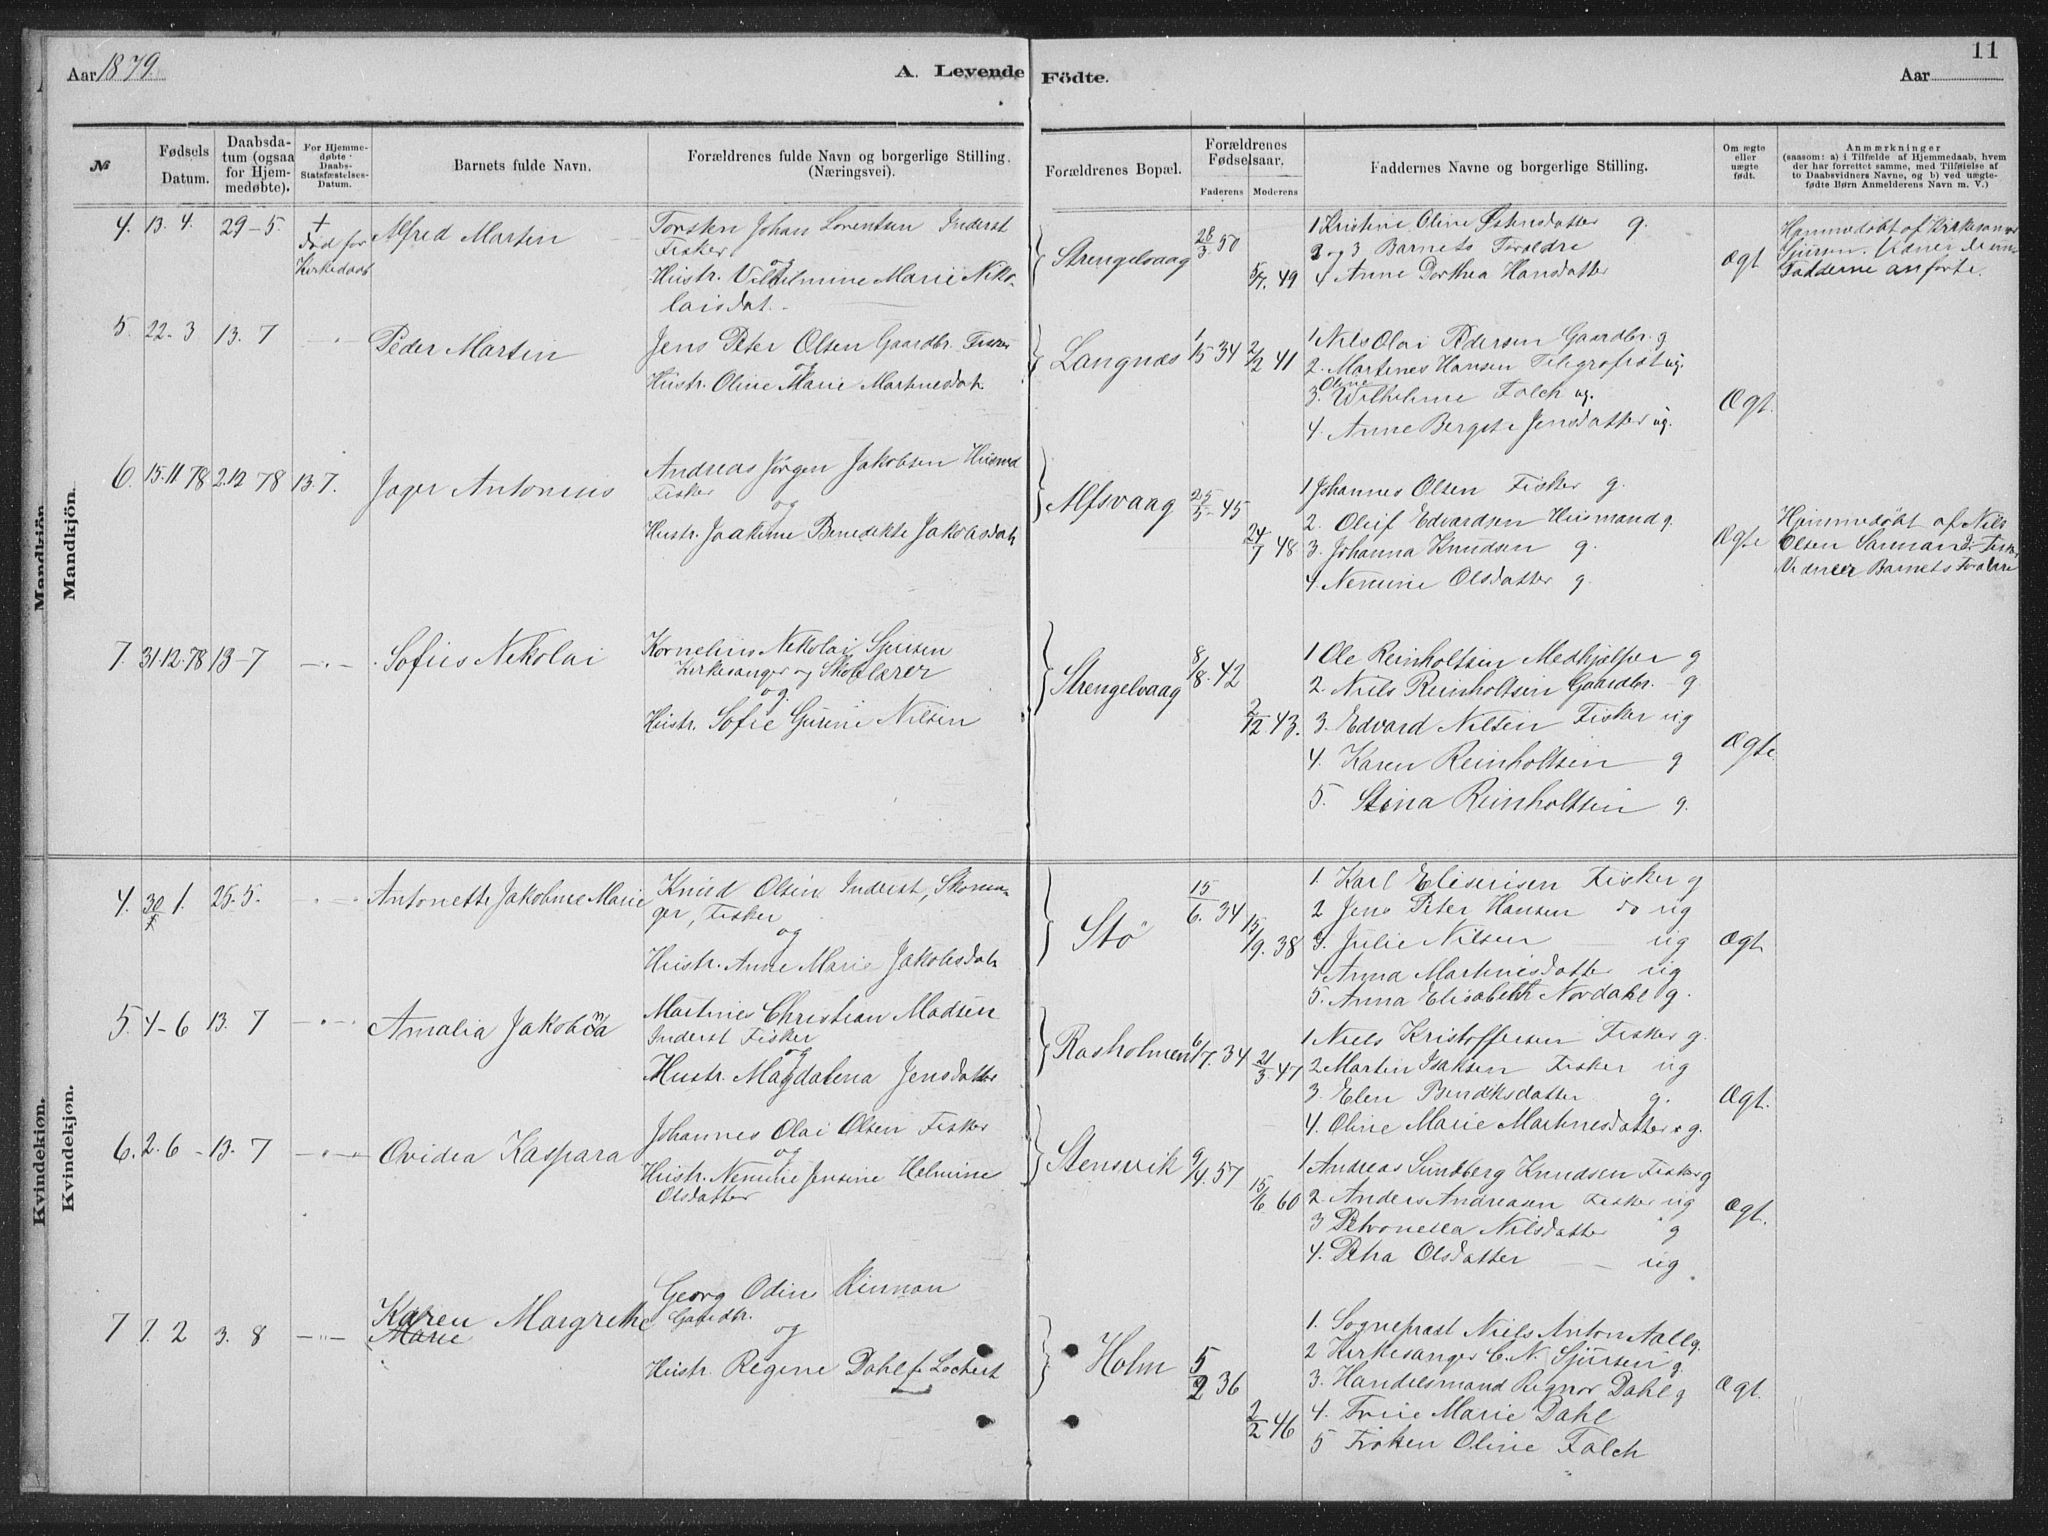 11
Aar 1879.
A. Levende Födte.
Aar
№
Fødsels Datum.
Daabsdatum (ogsaa for Hjemmedøbte).
For Hjemmedøbte Daabs-Statsfæstelses-Datum.
Barnets fulde Navn.
Forældrenes fulde Navn og borgerlige Stilling. (Næringsvei).
Forældrenes Bopæl.
Forældrenes Fødselsaar.
Faderens
Moderens
Faddernes Navne og borgerlige Stilling.
Om ægte eller uægte født.
Anmærkninger
(saasom: a) i Tilfælde af Hjemmedaab, hvem der har forrettet samme, med Tilføielse af to Daabsvidners Navne, og b) ved uægtefødte Børn Anmelderens Navn m. V.)
Mandkjön.
Mandkjön.
4. 13. 4. 29-5. †
Død før
Kirkedaab
Alfred Martin
Torsten Johan Lorentsen Inderst
Fisker
og
Hustr. Vilhelmine Marie Niko-
laisdat.
Strengelvaag
28/3 50
5/7. 49
1 Kristine Oline Østensdatter g.
2 og 3 Barnets Forældre
4 Anne Dorthea Hansdatter
Ægt
Hjemmedøbt af Kirkesanger
Sjursen. Vidner de un-
Fadderne anførte.
5. 22. 3 13. 7
Peder Martin
Jens Peter Olsen Gaardbr. Fisker
og
Hustr. Oline Marie Martinesdat.
Langnæs
1/5 34
2/2 41
1 Nils Olai Pedersen Gaardbr. g
2. Martines Hansen Telegrafist ug.
Oline
3. Wilhelmine Falch ug.
4. Anne Bergete Jensdatter ug.
Ægt.
6. 15. 11 78 2. 12 78 13. 7.
Jager Antonius
Andreas Jørgen Jakobsen Husmd
Fisker
og
Hustr. Joakime Benedikte Jakobsdat.
Alfsvaag
25/5 45
24/7 48
1 Johannes Olsen Fisker g.
2. Oluf Edvardsen Husmand g.
3. Johanna Knudsen g.
4. Nemine Olsdatter g.
Ægte
Hjemmedøbt af Nils
Olsen Fisker
Vidner Barnets Forældre
7. 31. 12. 78 13-7
Sofus Nikolai
Kornelius Nikolai Sjursen
Kirkesanger og Skolelærer
og
Hustr. Sofie Gurine Nilsen
Strengelvaag
8/8. 42
2/12 43.
1 Ole Reinholtsen Medhjælper g
2. Niels Reinholtsen Gaardbr. g.
3. Edvard Nilsen Fisker ug
4. Karen Reinholtsen g
5. Stina Reinholtsen g.
Ægte
Kvindekjön.
Kvindekjön.
4. 30/1. 25. 5.
Antonette Jakobine Marie
Knud Olsen Inderst, Skoma-
ger, Fisker
og
Hustr. Anne Marie Jakobsdat.
Stö
15/6. 34
15/9. 38
1. Karl Eliserisen Fisker g
2 Jens Peter Hansen do ug
3. Julie Nilsen ug
4 Anna Martinesdatter ug
5. Anna Elisabeth Nordahl g.
Ægt
5. 4-6 13. 7
Amalia Jakobina
Martines Christian Madsen
Inderst Fisker
og
Hustr. Magdalena Jensdatter
Rasholmen
6/7. 34
21/3. 47
1 Niels Kristoffersen Fisker g.
2 Martin Isaksen Fisker ug
3. Elen Bendiksdatter g.
4. Oline Marie Martinesdatter g.
Ægt.
6. 2. 6 - 13. 7
Ovidea Kaspara
Johannes Olai Olsen Fisker
og
Hustr. Nemine Jensine Helmine
Olsdatter
Stensvik
9/4. 57
15/6. 60
1 Andreas Sundberg Knudsen Fisker g
2. Anders Andreasen Fisker ug
3 Petronella Nilsdatter g
4. Petra Olsdatter ug
Ægt.
7 7. 2 3. 8
Karen Margrethe
Marie
Georg Odin Rinnan
Gaardbr.
og
Hustr. Regine Dahl f. Lochert
Holm
5/2 36
2/2 46
1. Sogneprast Niels Anton Aall g.
2 Kirkesanger C. N. Sjursen g.
3. Handelsmand Regnor Dahl g
4. Frue Marie Dahl
5 Frøken Oline Falch
Ægt.